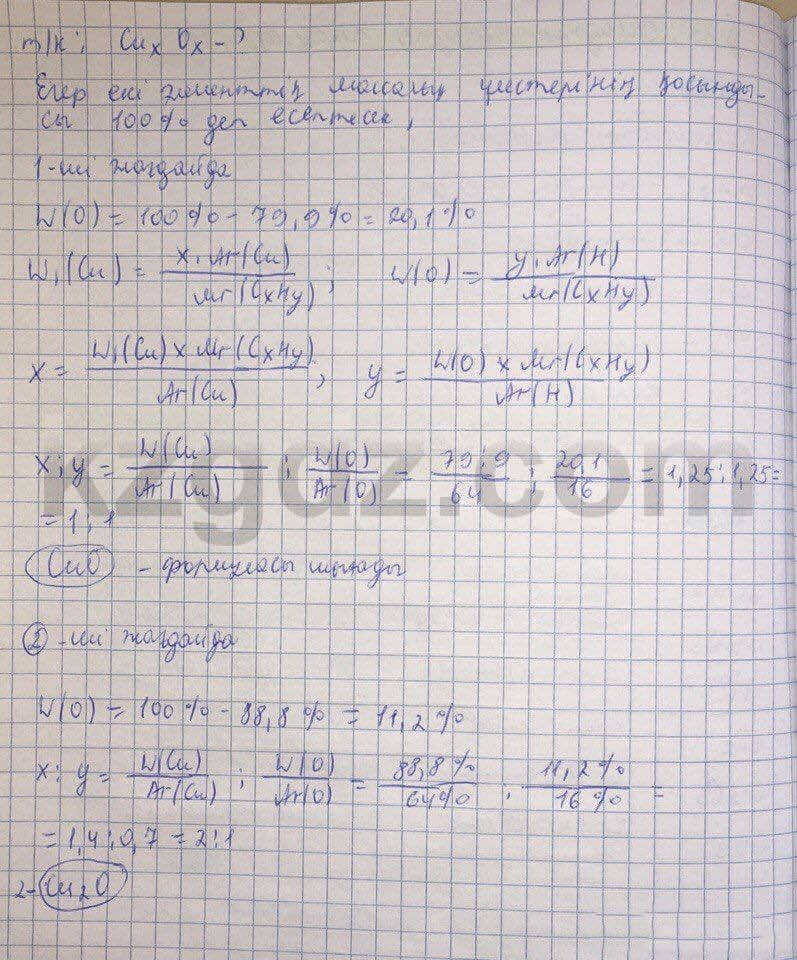 т/к: CuₓOₓ - ?
Егер екі элементтің массалық үлестерінің қосынды-
сы 100% деп есептесек,
1-ші жағдайда
W(O) = 100% - 79,9% = 20,1%
W₁(Cu) = x·Ar(Cu) / Mr(CxHy) ; W(O) = y·Ar(H) / Mr(CxHy)
x = W₁(Cu) x Mr(CxHy) / Ar(Cu) , y = W(O) x Mr(CxHy) / Ar(H)
x : y = W(Cu) / Ar(Cu) : W(O) / Ar(O) = 79,9 / 64 : 20,1 / 16 = 1,25 : 1,25 =
= 1 : 1
CuO - формуласы шығады
2 -ші жағдайда
W(O) = 100% - 88,8% = 11,2%
x : y = W(Cu) / Ar(Cu) : W(O) / Ar(O) = 88,8% / 64% : 11,2% / 16% =
= 1,4 : 0,7 = 2 : 1
2- Cu₂O
kzgdz.com